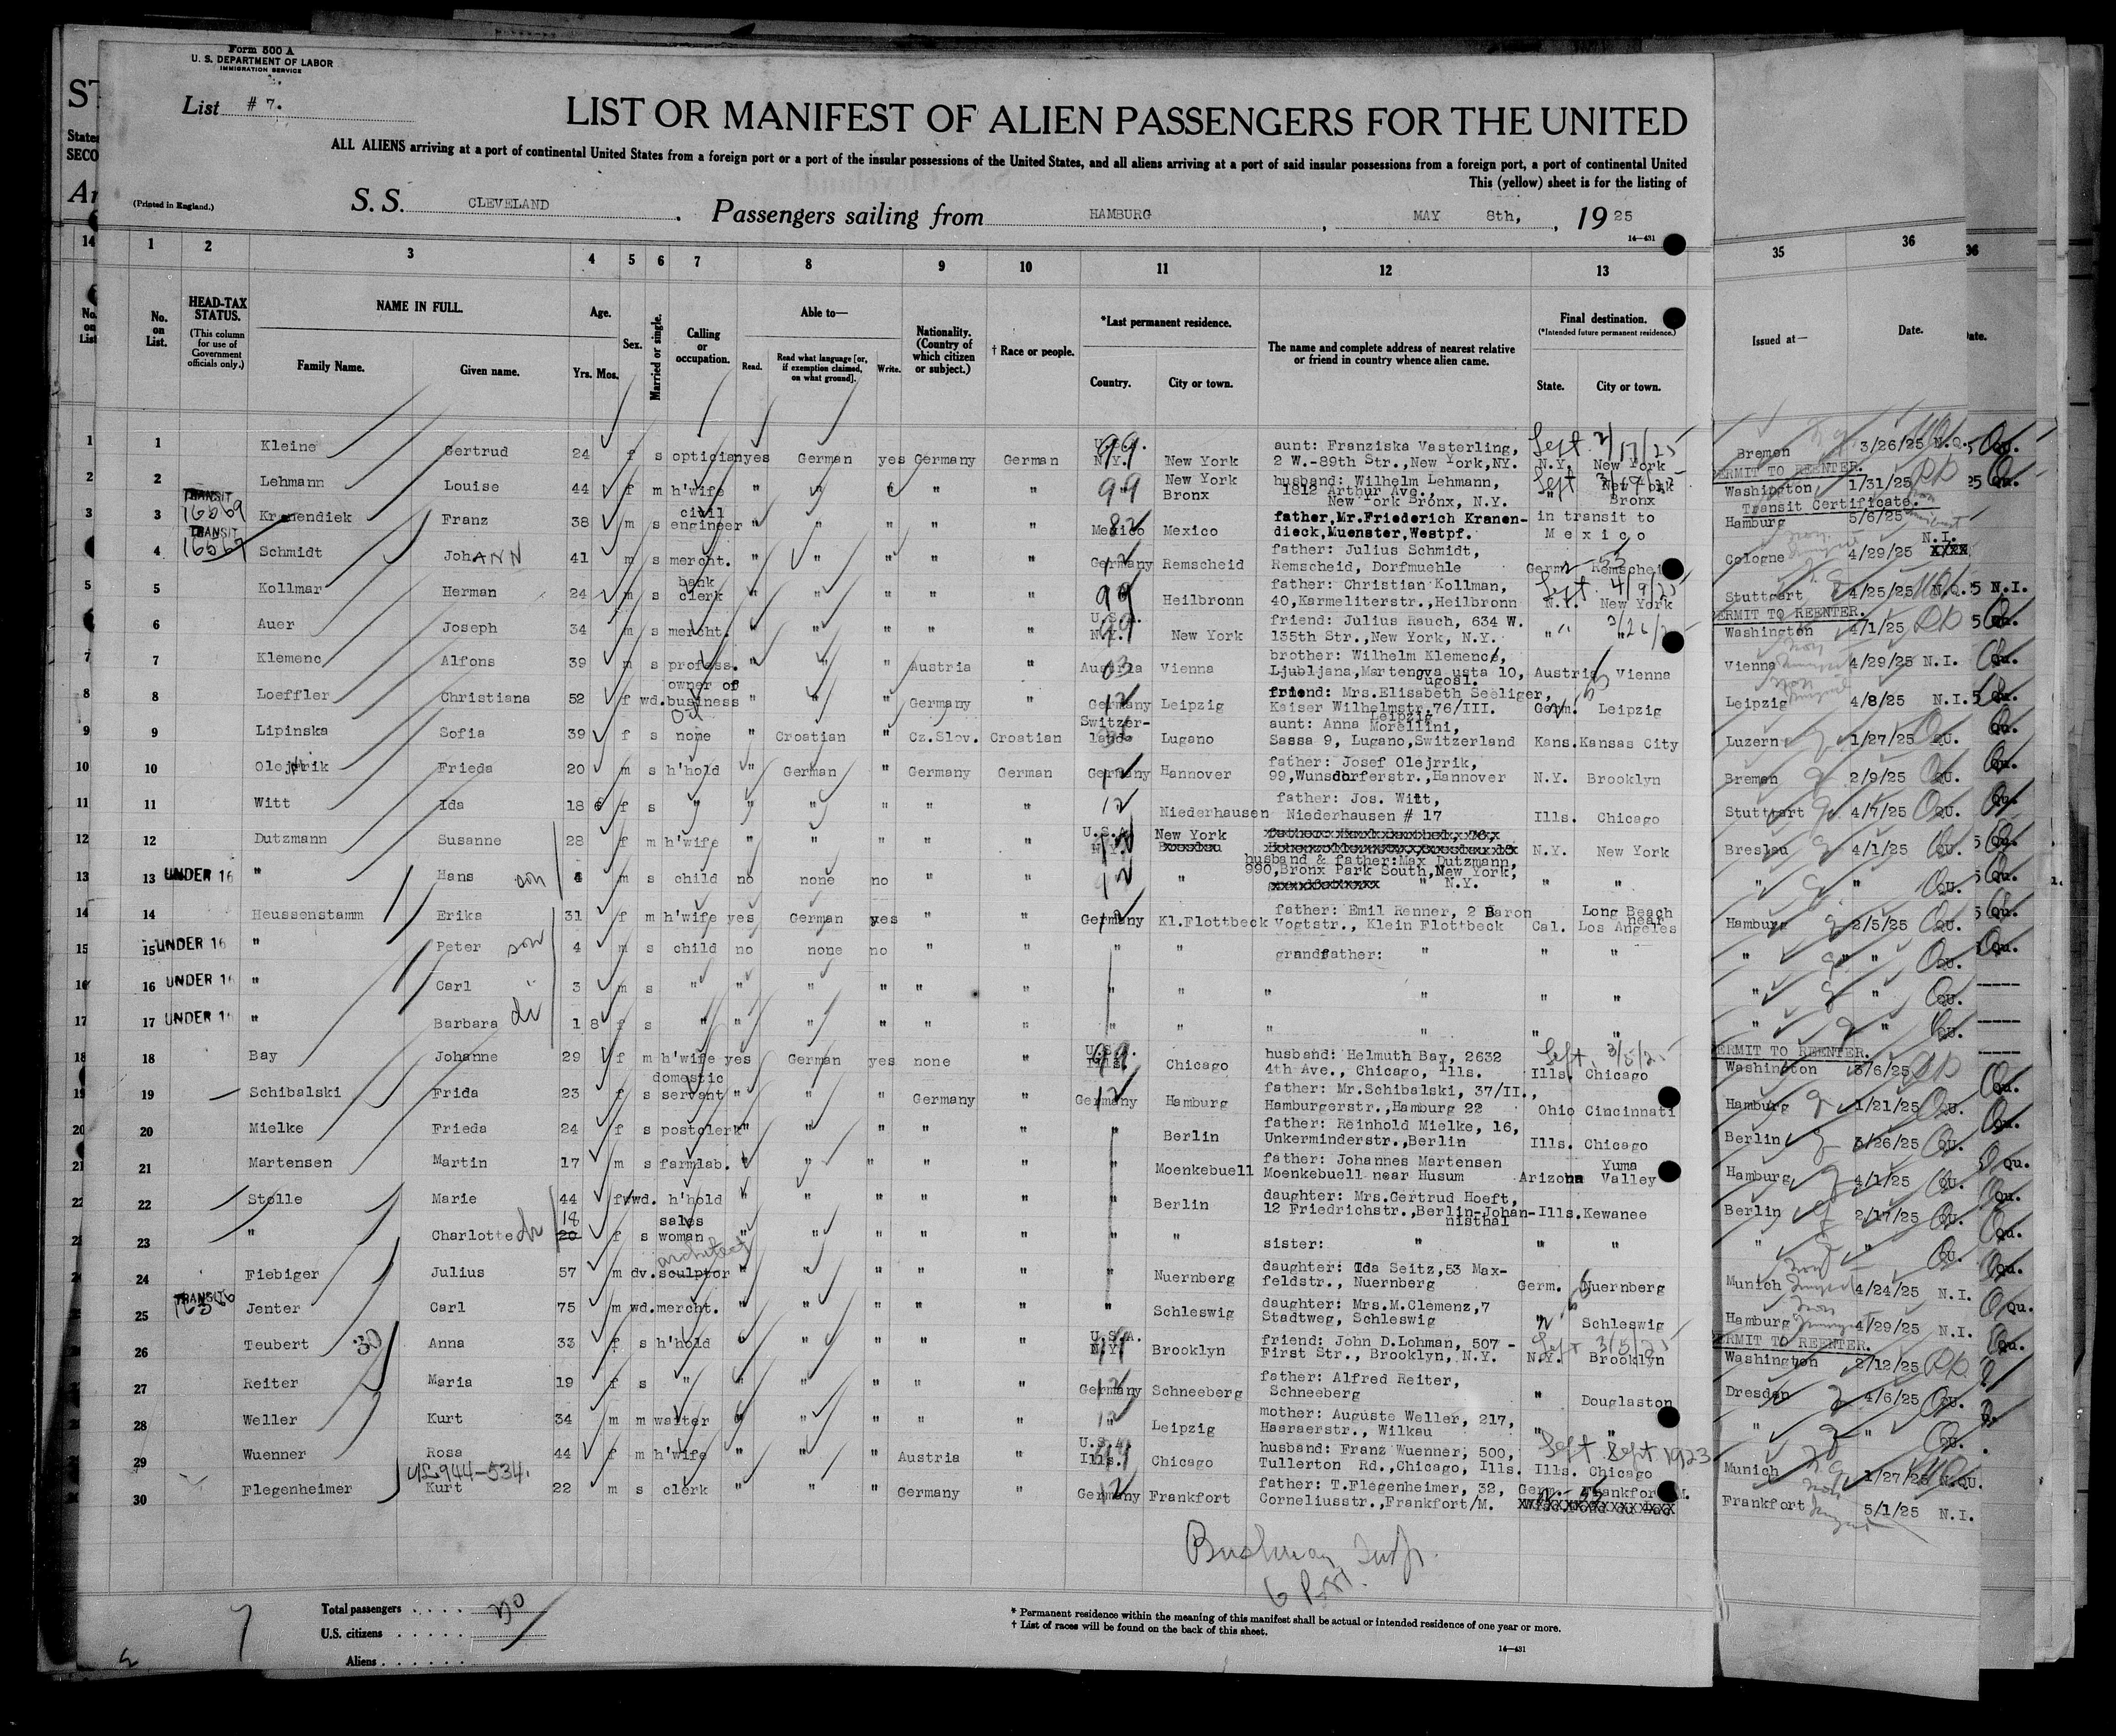 Form 500 A
U. S. DEPARTMENT OF LABOR
IMMIGRATION SERVICE
List # 7.
LIST OR MANIFEST OF ALIEN PASSENGERS FOR THE UNITED
ALL ALIENS arriving at a port of continental United States from a foreign port or a port of the insular possessions of the United States, and all aliens arriving at a port of said insular possessions from a foreign port, a port of continental United
This (yellow) sheet is for the listing of
(Printed in England.)
S. S. CLEVELAND . Passengers sailing from HAMBURG , MAY 8th, , 19 25
14—431
1 2 3 4 5 6 7 8 9 10 11 12 13 35 36
No. on List.
HEAD-TAX STATUS.
(This column for use of Government officials only.)
NAME IN FULL.
Family Name. Given name.
Age.
Yrs. Mos.
Sex.
Married or single.
Calling or occupation.
Able to—
Read. Read what language [or, if exemption claimed, on what ground]. Write.
Nationality. (Country of which citizen or subject.)
† Race or people.
*Last permanent residence.
Country. City or town.
The name and complete address of nearest relative or friend in country whence alien came.
Final destination.
(*Intended future permanent residence.)
State. City or town.
Issued at— Date.
1 Kleine Gertrud 24 f s optician yes German yes Germany German U.S.A. N.Y. New York aunt: Franziska Vasterling, 2 W.-89th Str., New York, NY. N.Y. New York Left 2/17/25 Bremen 3/26/25 N.Q.
2 Lehmann Louise 44 f m h'wife " " " " " New York Bronx husband: Wilhelm Lehmann, 1812 Arthur Ave., New York Bronx, N.Y. " New York Bronx PERMIT TO REENTER. Washington 1/31/25
TRANSIT 16569
3 Kranendiek Franz 38 m s civil engineer " " " " " Mexico Mexico father, Mr.Friederich Kranendieck, Muenster, Westpf. in transit to Mexico Transit Certificate. Hamburg 5/6/25
TRANSIT
4 Schmidt JohANN 41 m s mercht. " " " " " Germany Remscheid father: Julius Schmidt, Remscheid, Dorfmuehle Germ. Remscheid Cologne 4/29/25 N.I.
5 Kollmar Herman 24 m s bank clerk " " " " " 99 Heilbronn father: Christian Kollman, 40, Karmeliterstr., Heilbronn N.Y. New York Left 4/9/25 Stuttgart 4/25/25 N.Q.
6 Auer Joseph 34 m s mercht. " " " " " U.S.A. N.Y. New York friend: Julius Rauch, 634 W. 135th Str., New York, N.Y. " " PERMIT TO REENTER. Washington 4/1/25
7 Klemenc Alfons 39 m s profess. " " " Austria " Austria Vienna brother: Wilhelm Klemenc, Ljubljana, Martenova usta 10, Yugosl. Austria Vienna Vienna 4/29/25 N.I.
8 Loeffler Christiana 52 f wd. owner of business " " " Germany " Germany Leipzig friend: Mrs.Elisabeth Seeliger, Kaiser Wilhelmstr.76/III. Leipzig Germ. Leipzig Leipzig 4/8/25 N.I.
9 Lipinska Sofia 39 f s none " Croatian " Cz.Slov. Croatian Switzerland Lugano aunt: Anna Morellini, Sassa 9, Lugano, Switzerland Kans. Kansas City Luzern 1/27/25 QU.
10 Olejrrik Frieda 20 m s h'hold " German " Germany German Germany Hannover father: Josef Olejrrik, 99, Wunsdorferstr., Hannover N.Y. Brooklyn Bremen 2/9/25 QU.
11 Witt Ida 18 6 f s " " " " " " 12 Niederhausen father: Jos. Witt, Niederhausen # 17 Ills. Chicago Stuttgart 4/7/25 QU.
12 Dutzmann Susanne 28 f m h'wife " " " " " U.S.A. N.Y. New York N.Y. New York Breslau 4/1/25 QU.
13 UNDER 16 " Hans son 4 m s child no none no " " " husband & father: Max Dutzmann, 990, Bronx Park South, New York, N.Y. " " " " QU.
14 Heussenstamm Erika 31 f m h'wife yes German yes " " Germany Kl.Flottbeck father: Emil Renner, 2 Baron Vogtstr., Klein Flottbeck Cal. Long Beach near Los Angeles Hamburg 2/5/25 QU.
15 UNDER 16 " Peter son 4 m s child no none no " " " " grandfather: " " " " " QU.
16 UNDER 16 " Carl 3 m s " " " " " " " " " " " " " " QU.
17 UNDER 16 " Barbara 1 8 f s " " " " " " " " " " " " " " QU.
18 Bay Johanne 29 f m h'wife yes German yes none " U.S.A. Ills. Chicago husband: Helmuth Bay, 2632 4th Ave., Chicago, Ills. Ills. Chicago Left 3/5/25 PERMIT TO REENTER. Washington 3/6/25
19 Schibalski Frida 23 f s domestic servant " " " Germany " Germany Hamburg father: Mr.Schibalski, 37/II., Hamburgerstr., Hamburg 22 Ohio Cincinnati Hamburg 1/21/25 QU.
20 Mielke Frieda 24 f s postclerk " " " " " " Berlin father: Reinhold Mielke, 16, Unkerminderstr., Berlin Ills. Chicago Berlin 3/26/25 QU.
21 Martensen Martin 17 m s farmlab. " " " " " " Moenkebuell father: Johannes Martensen Moenkebuell near Husum Arizona Yuma Valley Hamburg 4/1/25 QU.
22 Stolle Marie 44 f wd. h'hold " " " " " " Berlin daughter: Mrs.Gertrud Hoeft, 12 Friedrichstr., Berlin-Johannisthal Ills. Kewanee Berlin 2/17/25 QU.
23 " Charlotte 18 20 f s sales woman " " " " " " " sister: " " " " " QU.
24 Fiebiger Julius 57 m dv. architect sculptor " " " " " " Nuernberg daughter: Ida Seitz, 53 Maxfeldstr., Nuernberg Germ. Nuernberg Munich 4/24/25 N.I.
TRANSIT
25 Jenter Carl 75 m wd. mercht. " " " " " " Schleswig daughter: Mrs.M.Clemenz, 7 Stadtweg, Schleswig " Schleswig Hamburg 4/29/25 N.I.
26 Teubert 30 Anna 33 f s h'hold " " " " " U.S.A. N.Y. Brooklyn friend: John D.Lohman, 507 - First Str., Brooklyn, N.Y. N.Y. Brooklyn Left 3/5/25 PERMIT TO REENTER. Washington 2/12/25
27 Reiter Maria 19 f s " " " " " " Germany Schneeberg father: Alfred Reiter, Schneeberg " Douglaston Dresden 4/6/25 QU.
28 Weller Kurt 34 m m waiter " " " " " " Leipzig mother: Auguste Weller, 217, Haaraerstr., Wilkau " " " " QU.
29 Wuenner Rosa 44 f m h'wife " " " Austria " U.S.A. Ills. Chicago husband: Franz Wuenner, 500, Tullerton Rd., Chicago, Ills. Ills. Chicago Left Sept 1923 Munich 1/27/25 N.QU.
30 Flegenheimer Kurt 22 m s clerk " " " Germany " Germany Frankfort father: T.Flegenheimer, 32, Corneliusstr., Frankfort/M. Germ. Frankfort M. Frankfort 5/1/25 N.I.
Total passengers . . . . 30
U.S. citizens . . . . .
Aliens . . . . . .
* Permanent residence within the meaning of this manifest shall be actual or intended residence of one year or more.
† List of races will be found on the back of this sheet.
14—431